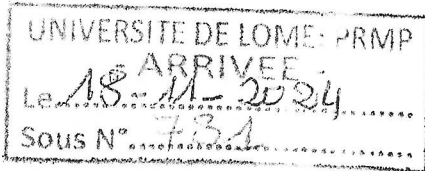 UNIVERSITE DE LOME: PRMP
ARRIVEE
Le 18-11-2024
Sous N° 731